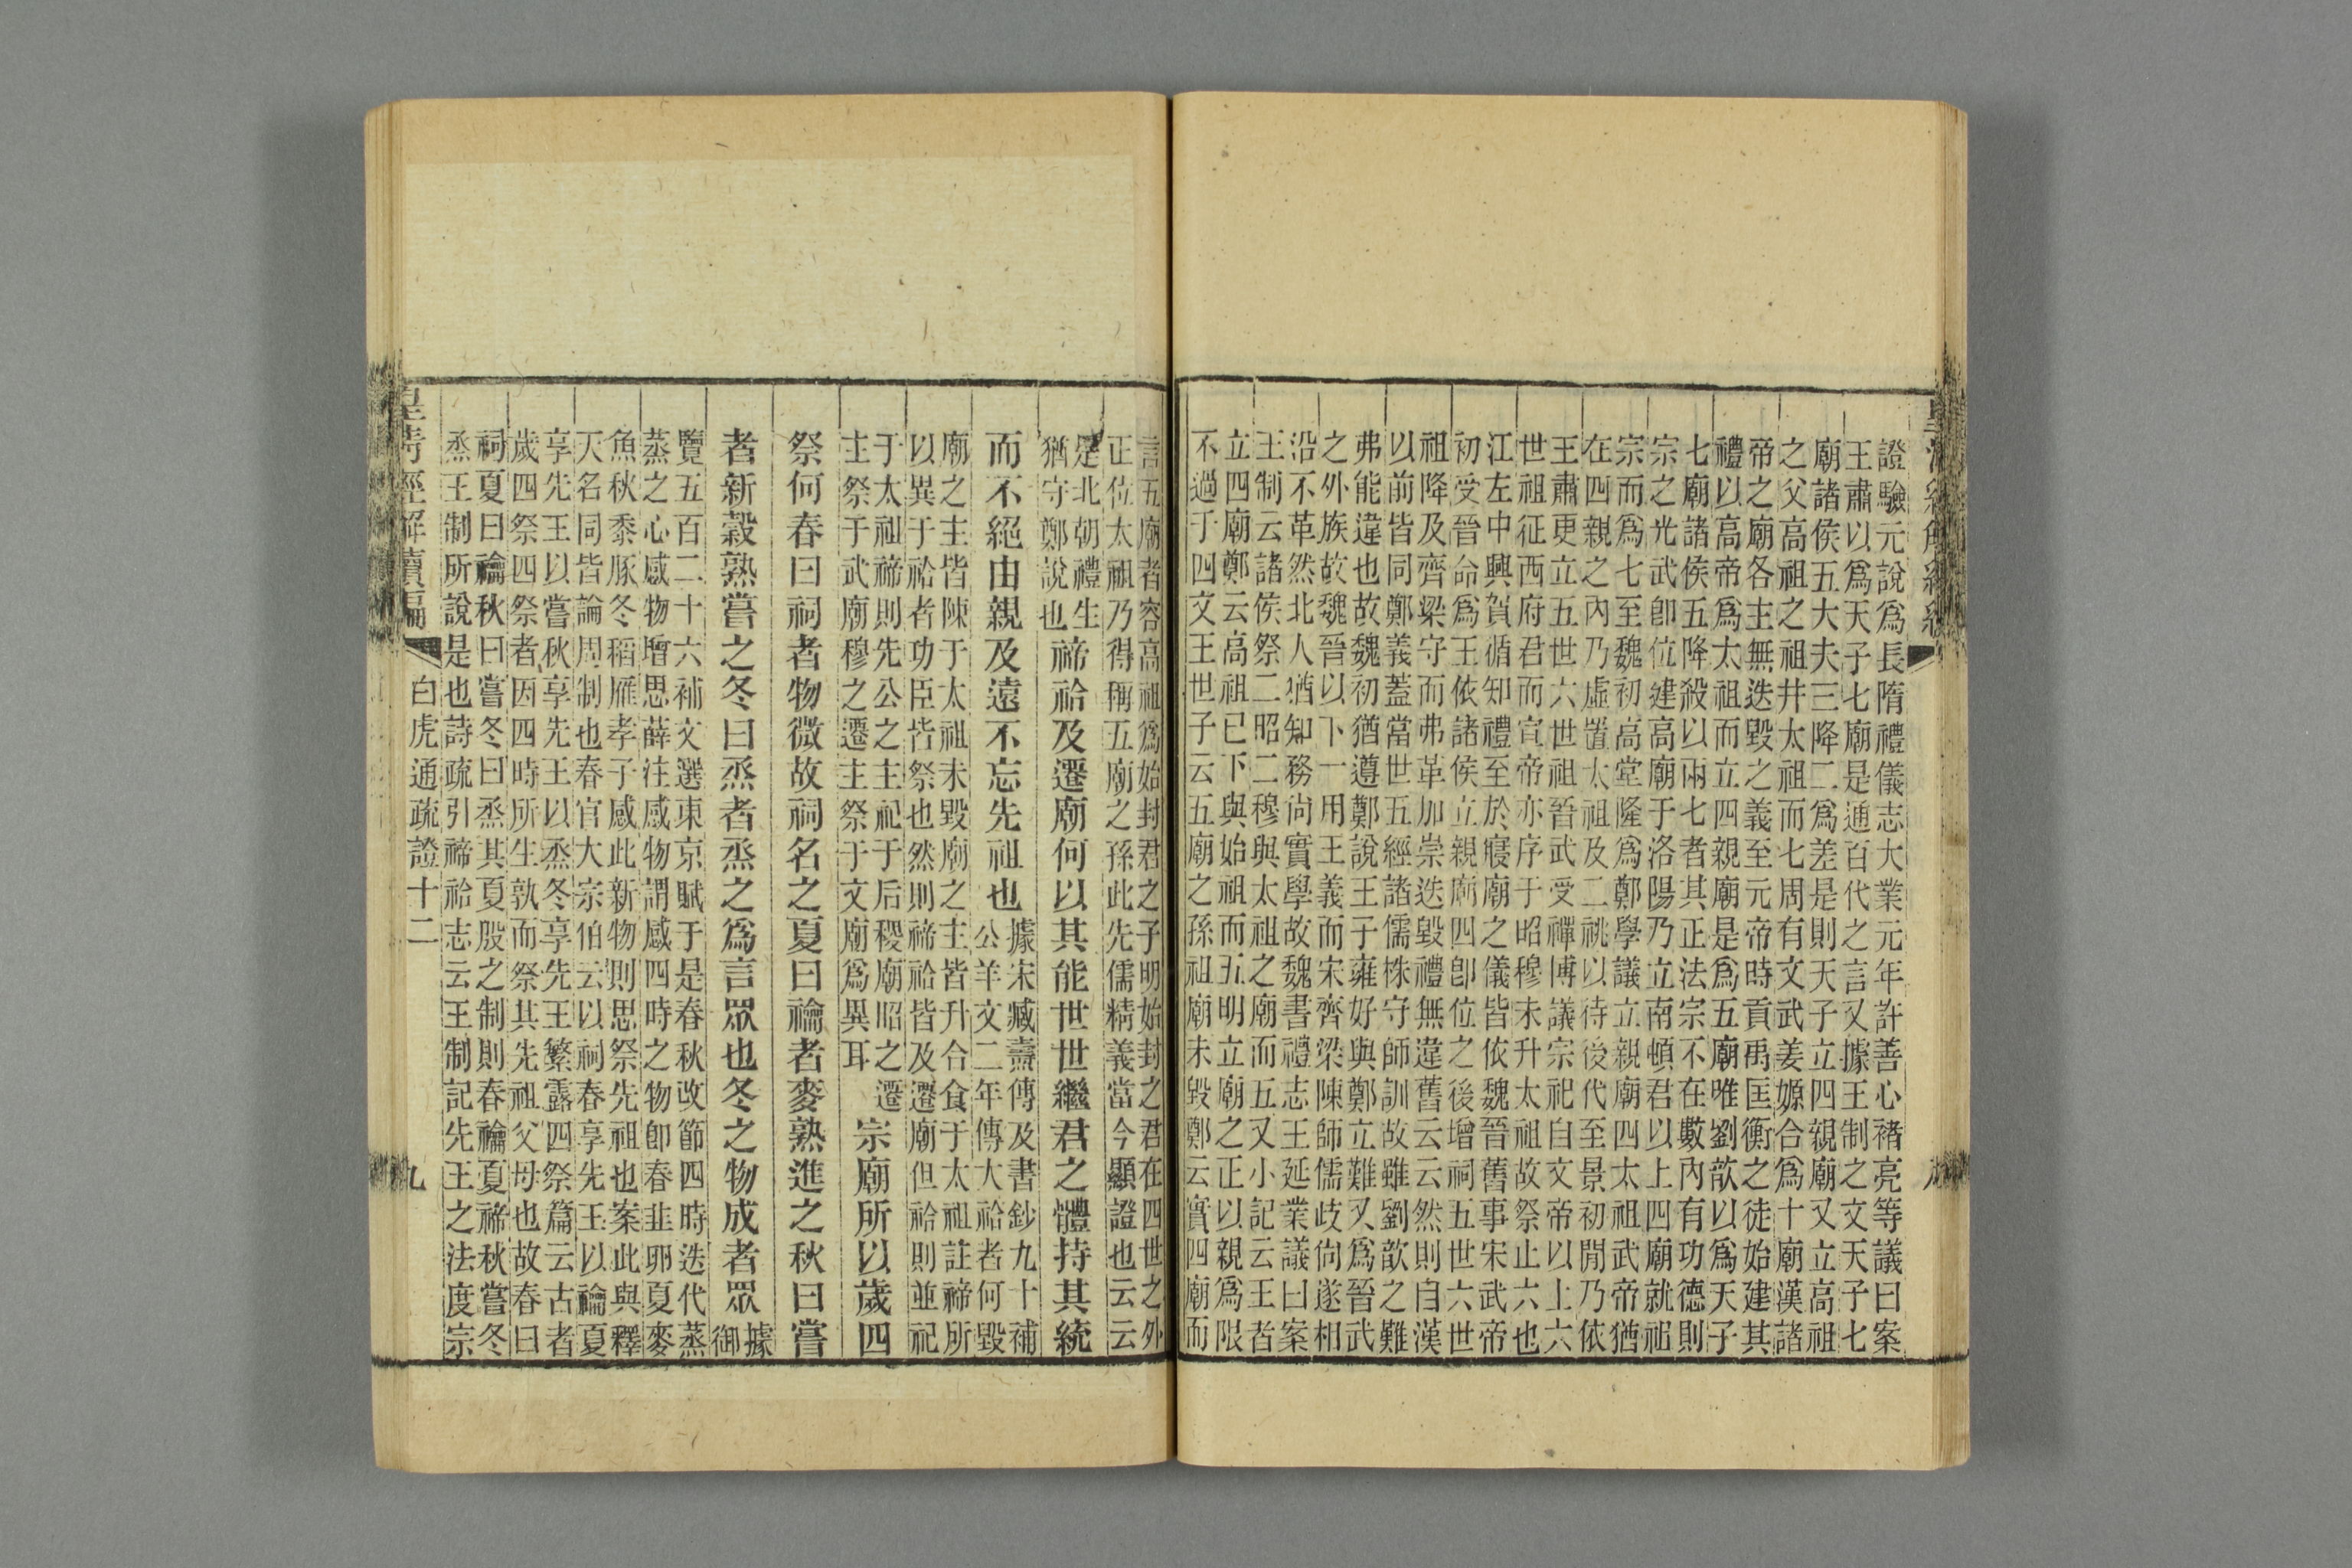 證驗元說爲長隋禮儀志大業元年許善心褚亮等議曰案
王肅以爲天子七廟是通百代之言又據王制之文天子七
廟諸侯五大夫三降二爲差是則天子立四親廟又立高祖
之父高祖之祖并太祖而七周有文武姜嫄合爲十廟漢諸
帝之廟各主無迭毀之義至元帝時貢禹匡衡之徒始建其
禮以高帝爲太祖而立四親廟是爲五廟唯劉歆以爲天子
七廟諸侯五降殺以兩七者其正法宗不在數內有功德則
宗之光武卽位建高廟于洛陽乃立南頓君以上四廟就祖
宗而爲七至魏初高堂隆爲鄭學議立親廟四太祖武帝猶
在四親之內乃虛置太祖及二祧以待後代至景初閒乃依
王肅更立五世六世祖晉武受禪博議宗祀自文帝以上六
世祖征西府君而宣帝亦序于昭穆未升太祖故祭止六也
江左中興賀循知禮至於寢廟之儀皆依魏晉舊事宋武帝
初受晉命爲王依諸侯立親廟四卽位之後增祠五世六世
祖降及齊梁守而弗革加崇迭毀禮無違舊云云然則自漢
以前皆同鄭義蓋當世五經諸儒株守師訓故雖劉歆之難
弗能違也故魏初猶遵鄭說王子雍好與鄭立難又爲晉武
之外族故魏晉以下一用王義而宋齊梁陳師儒歧尙遂相
沿不革然北人猶知務尙實學故魏書禮志王延業議曰案
王制云諸侯祭二昭二穆與太祖之廟而五又小記云王者
立四廟鄭云高祖已下與始祖而五明立廟之正以親爲限
不過于四文王世子云五廟之孫祖廟未毀鄭云實四廟而
言五廟者容高祖爲始封君之子明始封之君在四世之外
正位太祖乃得稱五廟之孫此先儒精義當今顯證也云云
是北朝禮生
猶守鄭說也禘祫及遷廟何以其能世世繼君之體持其統
而不絕由親及遠不忘先祖也據宋臧燾傳及書鈔九十補
公羊文二年傳大祫者何毀
廟之主皆陳于太祖未毀廟之主皆升合食于太祖註禘所
以異于祫者功臣皆祭也然則禘祫皆及遷廟但祫則並祀
于太祖禘則先公之主祀于后稷廟昭之遷
主祭于武廟穆之遷主祭于文廟爲異耳宗廟所以歲四
祭何春曰祠者物微故祠名之夏曰禴者麥熟進之秋曰嘗
者新穀熟嘗之冬曰烝者烝之爲言眾也冬之物成者眾據
御
覽五百二十六補文選東京賦于是春秋改節四時迭代蒸
蒸之心感物增思薛注感物謂感四時之物卽春韭卵夏麥
魚秋黍豚冬稻雁孝子感此新物則思祭先祖也案此與釋
天名同皆論周制也春官大宗伯云以祠春享先王以禴夏
享先王以嘗秋享先王以烝冬享先王繁露四祭篇云古者
歲四祭四祭者因四時所生孰而祭其先祖父母也故春曰
祠夏曰禴秋曰嘗冬曰烝其夏殷之制則春禴夏禘秋嘗冬
烝王制所說是也詩疏引禘祫志云王制記先王之法度宗
皇清經解續編 白虎通疏證十二 九